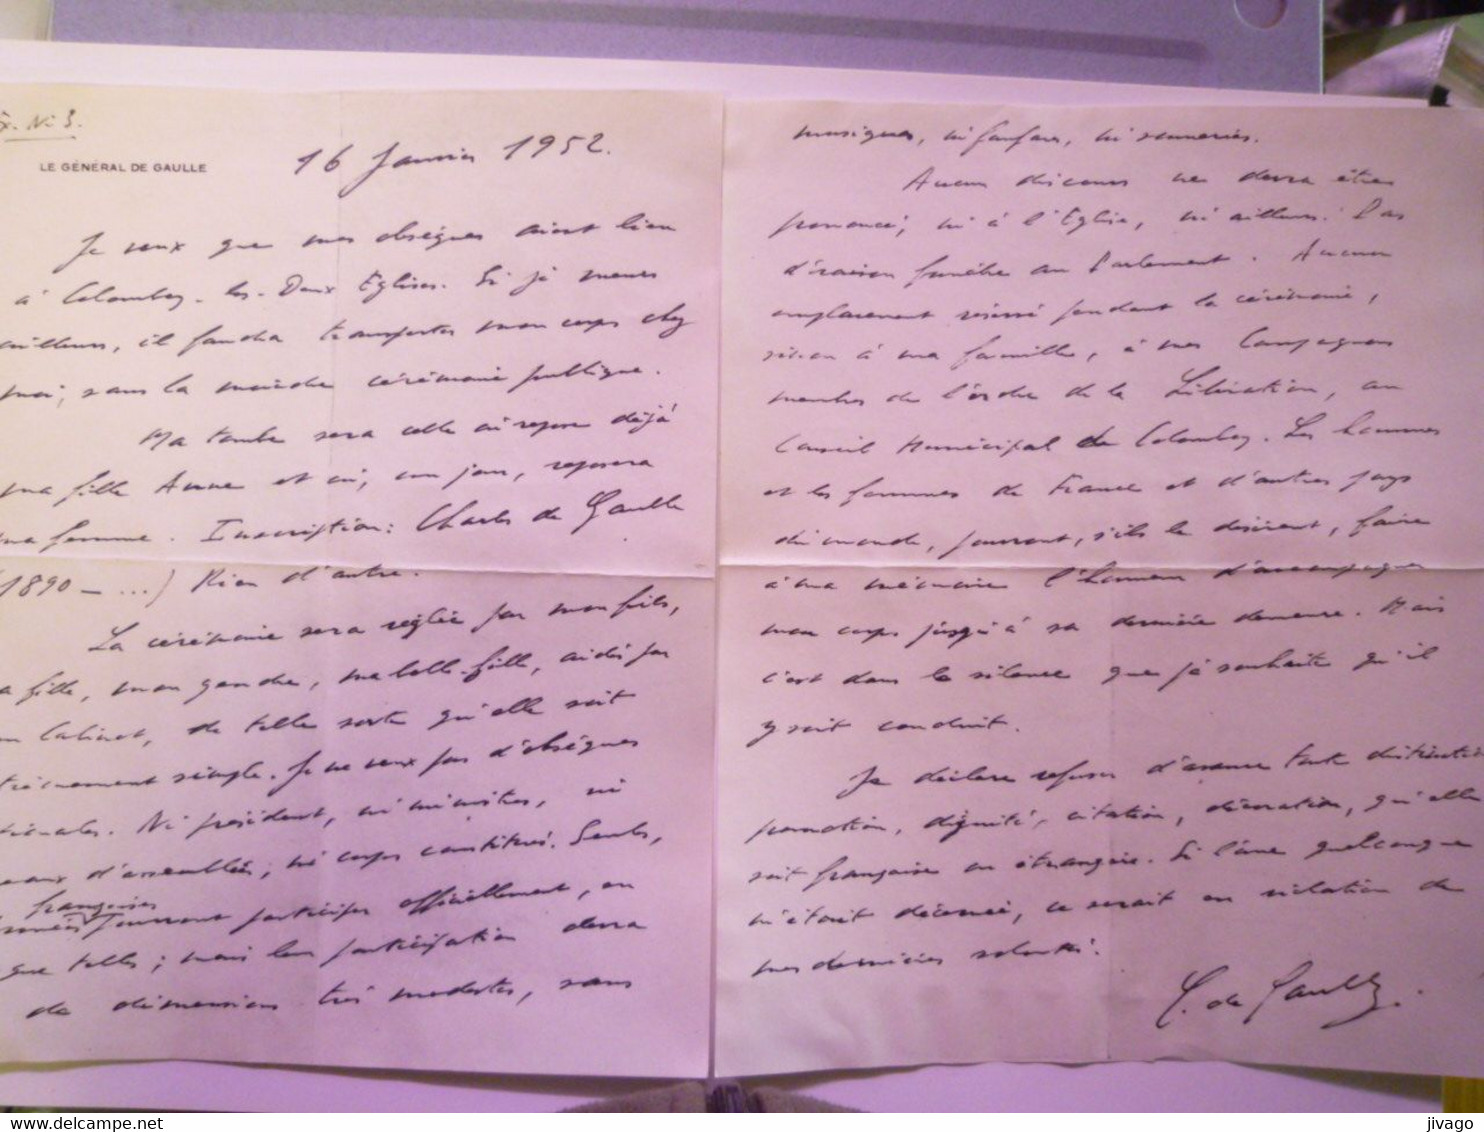 Ex. N: 3.
LE GÉNÉRAL DE GAULLE
16 Janvier 1952.
Je veux que mes obsèques aient lieu
à Colombey-les-Deux Eglises. Si je meurs
ailleurs, il faudra transporter mon corps chez
moi, sans la moindre cérémonie publique.
Ma tombe sera celle où repose déjà
ma fille Anne et où, un jour, reposera
ma femme. Inscription: Charles de Gaulle
(1890 - ...) Rien d'autre.
La cérémonie sera réglée par mon fils,
ma fille, mon gendre, ma belle-fille, aidés par
mon Cabinet, de telle sorte qu'elle soit
extrêmement simple. Je ne veux pas d'obsèques
nationales. Ni président, ni ministres, ni
bureaux d'assemblées, ni corps constitués. Seules,
françaises
armées pourront participer officiellement, en
que telles; mais leur participation devra
de dimensions très modestes, sans
musiques, ni fanfare, ni sonneries.
Aucun discours ne devra être
prononcé, ni à l'Eglise, ni ailleurs. Pas
d'oraison funèbre au Parlement. Aucun
emplacement réservé pendant la cérémonie,
sinon à ma famille, à mes Compagnons
membres de l'ordre de la Libération, au
Conseil Municipal de Colombey. Les hommes
et les femmes de France et d'autres pays
du monde, pourront, s'ils le désirent, faire
à ma mémoire l'honneur d'accompagner
mon corps jusqu'à sa dernière demeure. Mais
c'est dans le silence que je souhaite qu'il
y soit conduit.
Je déclare refuser d'avance toute distinction
promotion, dignité, citation, décoration, qu'elle
soit française ou étrangère. Si l'une quelconque
m'était décernée, ce serait en violation de
mes dernières volontés.
C. de Gaulle.
delcampe.net
jivago